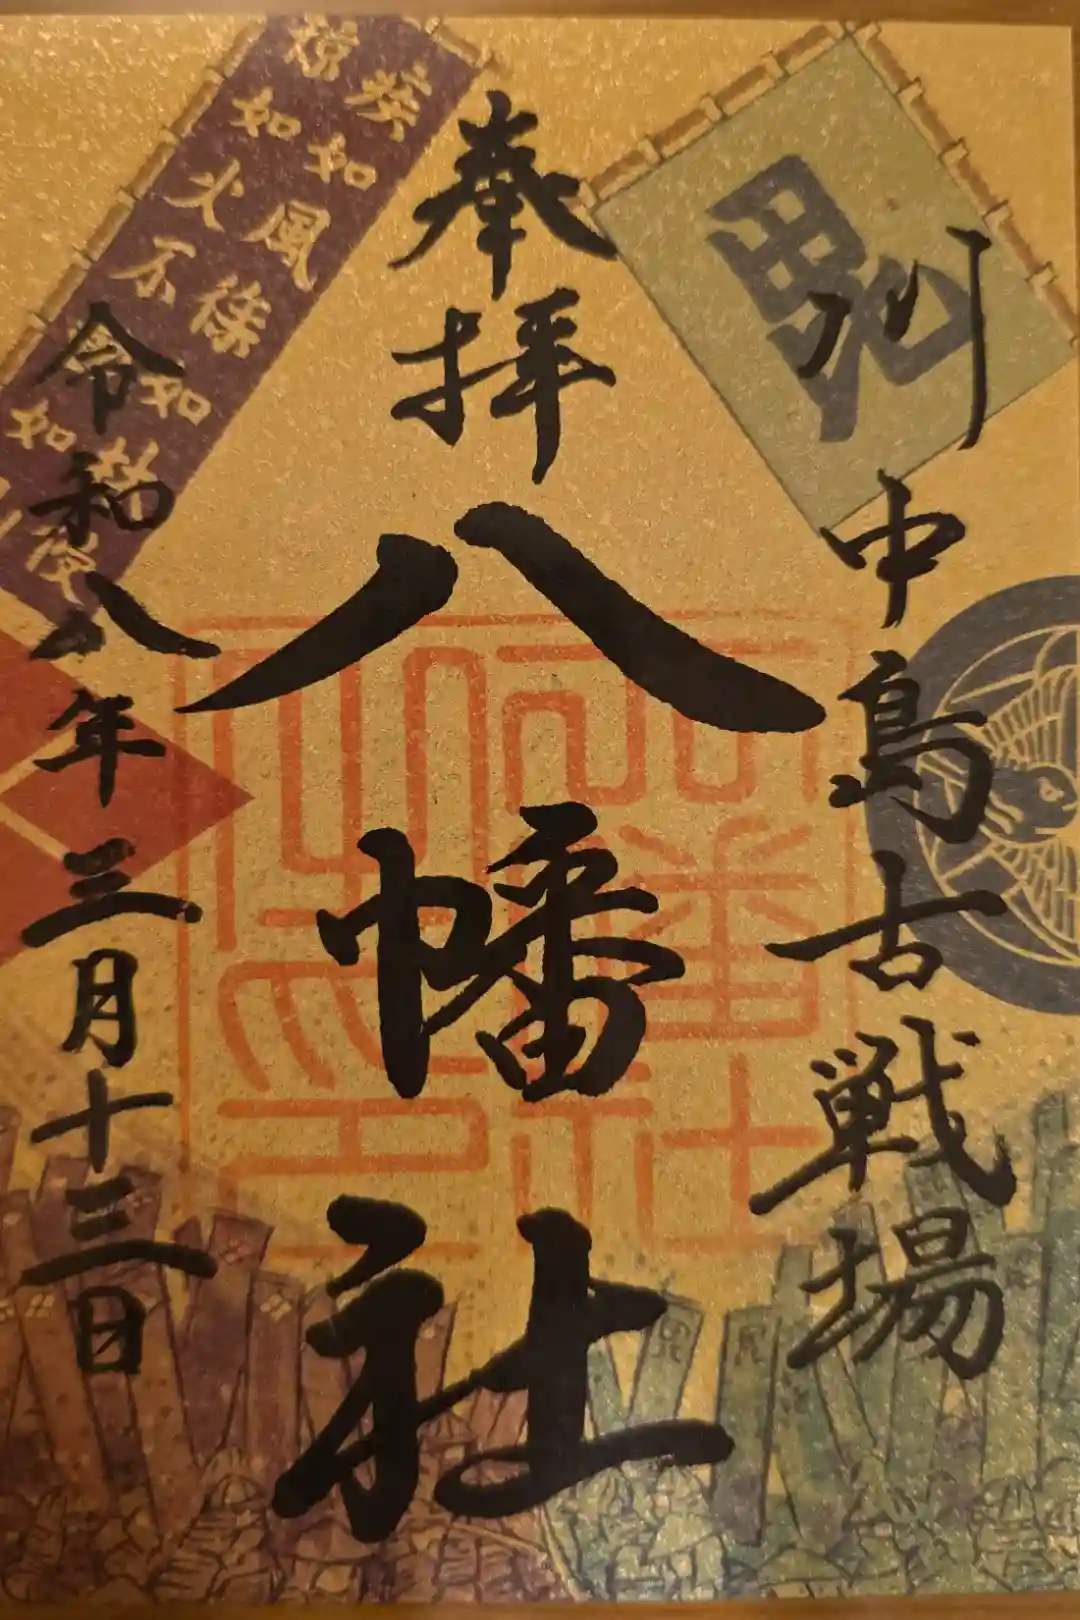 毘
川中島古戦場
奉拝
八幡社
疾如風徐如
掠如火不
如
令和八年三月十三日